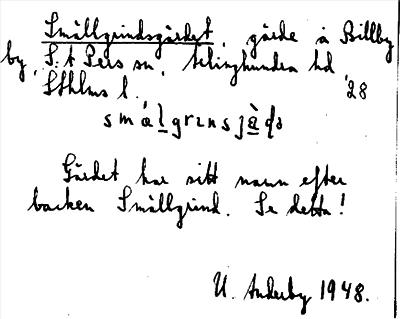 Smällgrindsgärdet, gärde å Billby
by, S:t Pers sn, Seminghundra hd
Sthlms l. '28
smálgrɪnsjàdə
Gärdet har sitt namn efter
backen Smällgrind. Se detta!
U. Anderby 1948.